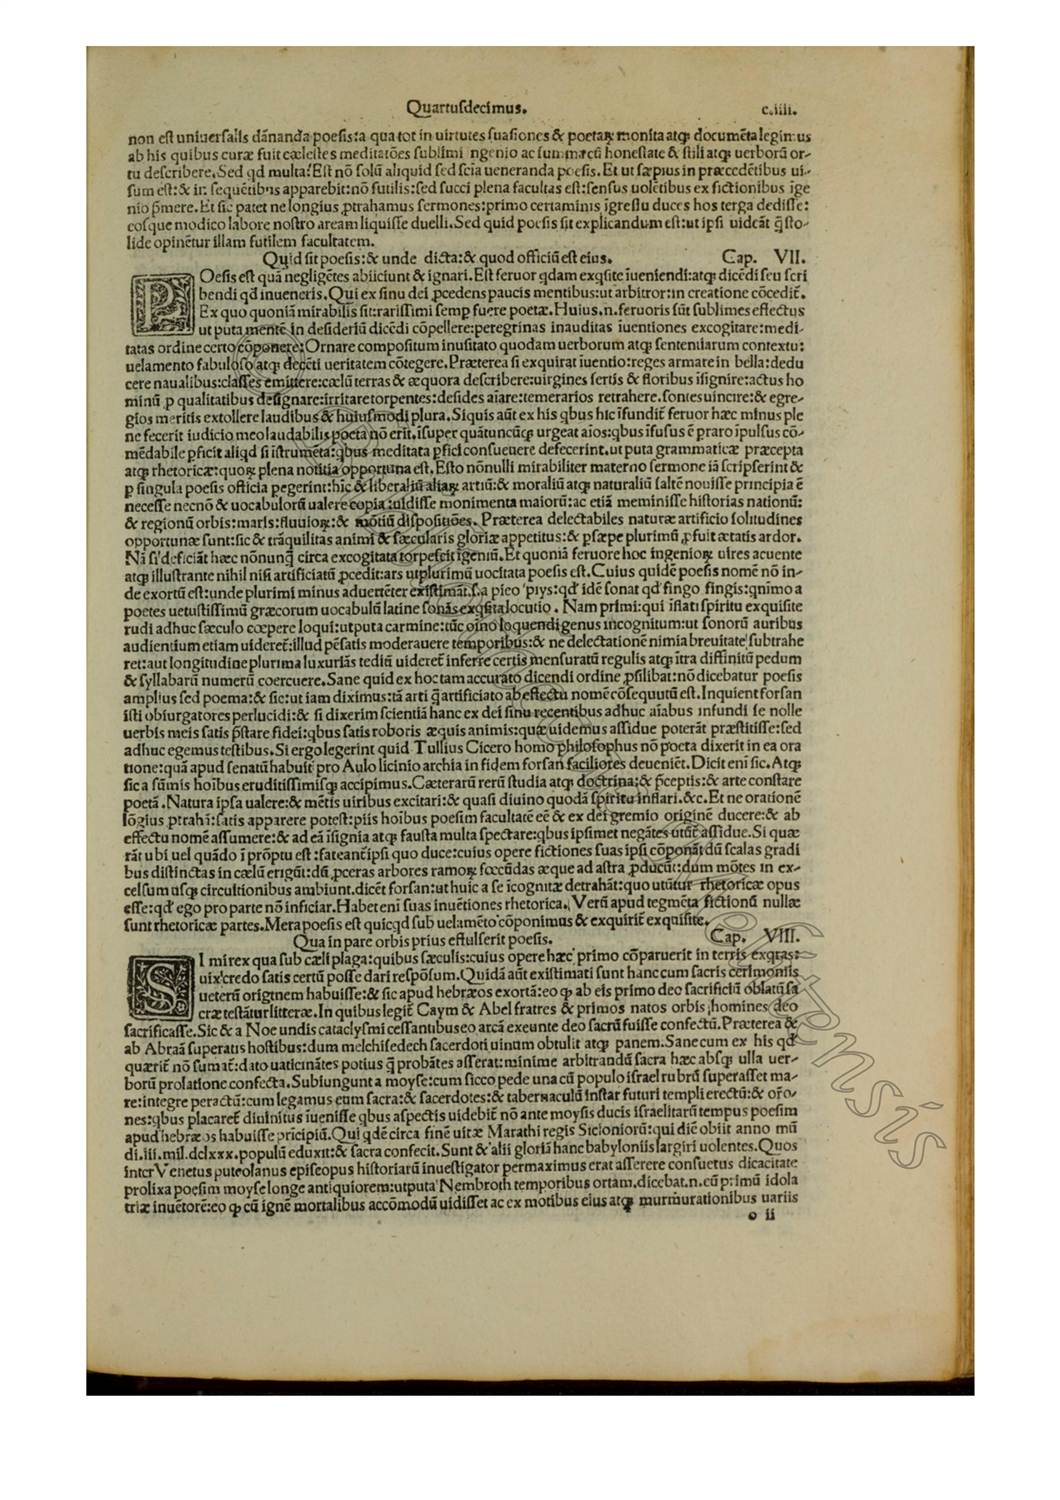 Quartusdecimus. c.iiii.
non est uniuersalis dãnanda poesis:a qua tot in uirtutes suasiones & poetaꝝ monita atqꝫ documẽta legimus
ab his quibus curæ fuit cælestes meditatões sublimi ngenio ac summa cũ honestate & stili atqꝫ uerborũ or-
tu describere. Sed qd multa? Est nõ solũ aliquid sed scĩa ueneranda poesis. Et ut sæpius in præcedẽtibus ui-
sum est:& in sequẽtibus apparebit:nõ futilis:sed succi plena facultas est:sensus uolẽtibus ex fictionibus ĩge
nio p̃mere. Et sic patet ne longius ꝓtrahamus sermones:primo certaminis ĩgressu duces hos terga dedisse:
eosque modico labore nostro aream liquisse duelli. Sed quid poesis sit explicandum est:ut ipsi uideãt q̃ sto-
lide opinẽtur illam futilem facultatem.
Quid sit poesis:& unde dicta:& quod officiũ est eius. Cap. VII.
POesis est quã negligẽtes abiiciunt & ignari. Est feruor qdam exqsite ĩueniendi:atqꝫ dicẽdi seu scri
bendi qd inueneris. Qui ex sinu dei ꝓcedens paucis mentibus:ut arbitror:in creatione cõcedit̃.
Ex quo quoniã mirabilis sit:rarissimi semp fuere poetæ. Huius.n.feruoris sũt sublimes effectus
ut puta mentẽ in desideriũ dicẽdi cõpellere:peregrinas inauditas ĩuentiones excogitare:medi-
tatas ordine certo cõponere:Ornare compositum inusitato quodam uerborum atqꝫ sententiarum contextu:
uelamento fabuloso atqꝫ decẽti ueritatem cõtegere. Præterea si exquirat ĩuentio:reges armare in bella:dedu
cere naualibus:classes emittere:cælũ terras & æquora describere:uirgines sertis & floribus ĩsignire:actus ho
minũ ꝓ qualitatibus designare:irritare torpentes:desides aĩare:temerarios retrahere.fontes uincire:& egre-
gios meritis extollere laudibus & huiusmodi plura. Siquis aũt ex his qbus hic ĩfundit̃ feruor hæc minus ple
ne fecerit iudicio meo laudabilis poeta nõ erit.ĩsuper quãtuncũqꝫ urgeat aĩos:qbus ĩfusus ẽ praro ĩpulsus cõ-
mẽdabile ꝑficit aliqd si ĩstrumẽta:qbus meditata ꝑfici consueuere defecerint.ut puta grammaticæ præcepta
atqꝫ rhetoricæ:quoꝝ plena notitia opportuna est. Esto nõnulli mirabiliter materno sermone iã scripserint &
ꝑ singula poesis officia ꝑegerint:hĩc & liberaliũ aliaꝝ artiũ:& moraliũ atqꝫ naturaliũ saltẽ nouisse principia ẽ
necesse necnõ & uocabulorũ ualere copia:uidisse monimenta maiorũ:ac etiã meminisse historias nationũ:
& regionũ orbis:maris:fluuioꝝ:& mõtiũ dispositiões. Præterea delectabiles naturæ artificio solitudines
opportunæ sunt:sic & trãquilitas animi & sæcularis gloriæ appetitus:& ꝑsæpe plurimũ ꝓfuit ætatis ardor.
Nã si deficiãt hæc nõnunq̃ circa excogitata torpescit ĩgeniũ. Et quoniã feruore hoc ingenioꝝ uires acuente
atqꝫ illustrante nihil nisi artificiatũ ꝓcedit:ars utplurimũ uocitata poesis est. Cuius quidẽ poesis nomẽ nõ in-
de exortũ est:unde plurimi minus aduertẽter existimãt.s.a pieo piys:qd idẽ sonat qd fingo fingis:qnimo a
poetes uetustissimũ græcorum uocabulũ latine sonãs exqsita locutio. Nam primi:qui ĩflati spiritu exquisite
rudi adhuc sæculo cœpere loqui:utputa carmine:tũc oĩno loquendi genus incognitum:ut sonorũ auribus
audientium etiam uideret̃:illud pẽsatis moderauere temporibus:& ne delectationẽ nimia breuitate subtrahe
ret:aut longitudine plurima luxuriãs tediũ uideret̃ inferre certis mensuratũ regulis atqꝫ ĩtra diffinitũ pedum
& syllabarũ numerũ coercuere. Sane quid ex hoc tam accurato dicendi ordine ꝓsilibat:nõ dicebatur poesis
amplius sed poema:& sic:ut iam diximus:tã arti q̃ artificiato ab effectu nomẽ cõsequutũ est. Inquient forsan
isti obiurgatores perlucidi:& si dixerim scientiã hanc ex dei sinu recentibus adhuc aĩabus infundi se nolle
uerbis meis satis p̃stare fidei:qbus satis roboris æquis animis:quæ uidemus assidue poterãt præstitisse:sed
adhuc egemus testibus. Si ergo legerint quid Tullius Cicero homo philosophus nõ poeta dixerit in ea ora
tione:quã apud senatũ habuit pro Aulo licinio archia in fidem forsan faciliores deueniẽt. Dicit eni sic. Atqꝫ
sic a sũmis hoĩbus eruditissimisqꝫ accipimus. Cæterarũ rerũ studia atqꝫ doctrina:& p̃ceptis:& arte constare
poetã. Natura ipsa ualere:& mẽtis uiribus excitari:& quasi diuino quodã spiritu inflari.&c. Et ne orationẽ
lõgius ꝓtrahã:satis apparere potest:piis hoĩbus poesim facultatẽ eẽ & ex dei gremio originẽ ducere:& ab
effectu nomẽ assumere:& ad eã ĩsignia atqꝫ fausta multa spectare:qbus ipsimet negãtes utũt̃ assidue. Si quæ
rãt ubi uel quãdo ĩ prõptu est:fateant̃ ipsi quo duce:cuius opere fictiones suas ipsi cõponãt dũ scalas gradi
bus distinctas in cælũ erigũt:dũ ꝓceras arbores ramoꝝ fœcũdas æque ad astra ꝓducũt:dum mõtes in ex-
celsum usqꝫ circuitionibus ambiunt.dicẽt forsan:ut huic a se ĩcognitæ detrahãt:quo utũtur rhetoricæ opus
esse:qd ego pro parte nõ inficiar. Habet eni suas inuẽtiones rhetorica. Verũ apud tegmẽta fictionũ nullæ
sunt rhetoricæ partes. Mera poesis est quicqd sub uelamẽto cõponimus & exquirit̃ exquisite.
Qua in pare orbis prius effulserit poesis. Cap. VIII.
SI mirex qua sub cæli plaga:quibus sæculis:cuius opere hæc primo cõparuerit in terris exqras:
uix credo satis certũ posse dari respõsum. Quidã aũt existimati sunt hanc cum sacris cerimoniis
ueterũ originem habuisse:& sic apud hebræos exortã:eo ꝙ ab eis primo deo sacrificiũ oblatũ sa
cræ testãtur litteræ. In quibus legit̃ Caym & Abel fratres & primos natos orbis homines deo
sacrificasse. Sic & a Noe undis cataclysmi cessantibus eo arcã exeunte deo sacrũ fuisse confectũ. Præterea &
ab Abraã superatis hostibus:dum melchisedech sacerdoti uinum obtulit atqꝫ panem. Sane cum ex his qd
quærit̃ nõ sumat̃:dato uaticinãtes potius q̃ probãtes asserãt:minime arbitrandũ sacra hæc absqꝫ ulla uer-
borũ prolatione confecta. Subiungunt a moyse:cum sicco pede una cũ populo israel rubrũ superasset ma-
re:integre peractũ:cum legamus eum sacra:& sacerdotes:& tabernaculũ instar futuri templi erectũ:& oro-
nes:qbus placaret̃ diuinitus ĩuenisse qbus aspectis uidebit̃ nõ ante moysis ducis israelitarũ tempus poesim
apud hebræos habuisse pricipiũ. Qui qdẽ circa finẽ uitæ Marathi regis Sicioniorũ:qui diẽ obiit anno mũ
di.iii.mil.dclxxx.populũ eduxit:& sacra confecit. Sunt & alii gloriã hanc babyloniis largiri uolentes. Quos
inter Venetus puteolanus episcopus historiarũ inuestigator permaximus erat asserere consuetus dicacitate
prolixa poesim moyse longe antiquiorem:utputa Nembroth temporibus ortam.dicebat.n.cũ primũ idola
triæ inuẽtorẽ:eo ꝙ cũ ignẽ mortalibus accõmodũ uidisset ac ex motibus eius atqꝫ murmurationibus uariis
o ii